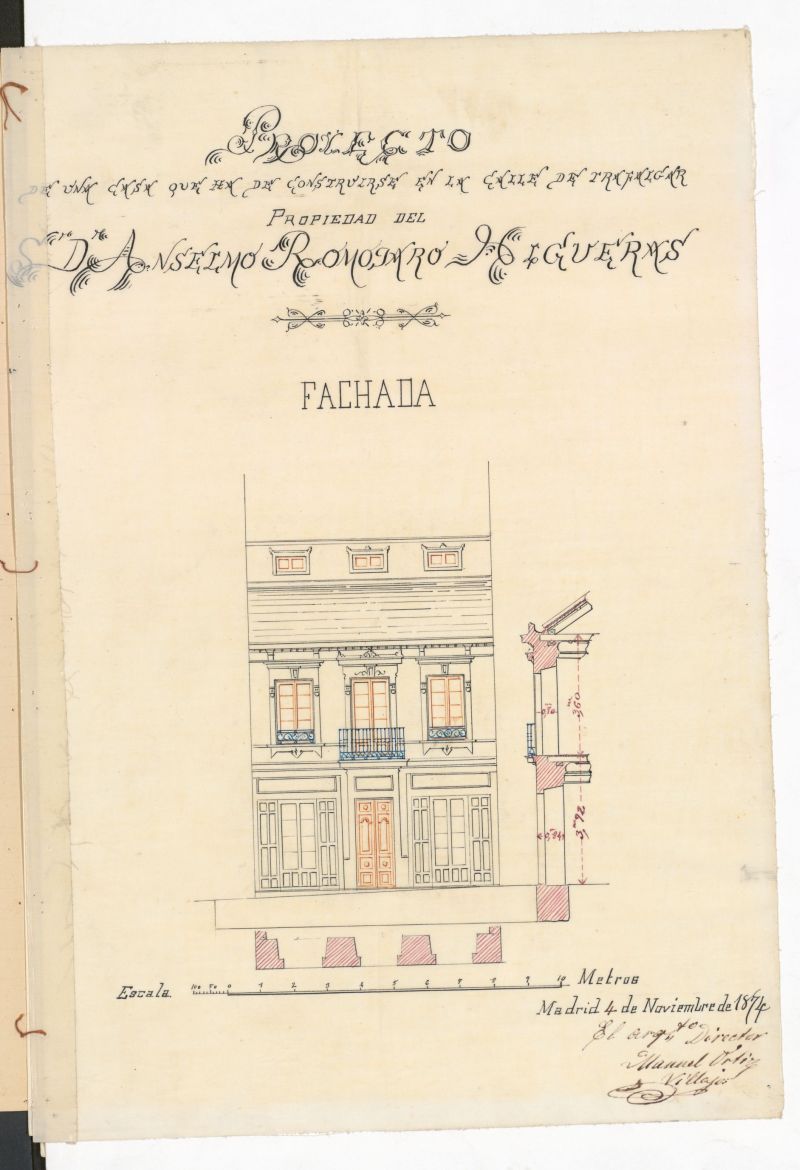 PROYECTO
DE UNA CASA QUE HA DE CONSTRUIRSE EN LA CALLE DE TRAFALGAR
PROPIEDAD DEL
D. ANSELMO ROMOJARO HIGUERAS
FACHADA
0,70
3,m60
0,84
3,m92
Escala.
100 50 0 1 2 3 4 5 6 7 8 9 10 Metros
Madrid 4 de Noviembre de 1874
El arqto Director
Manuel Ortiz
Villajos